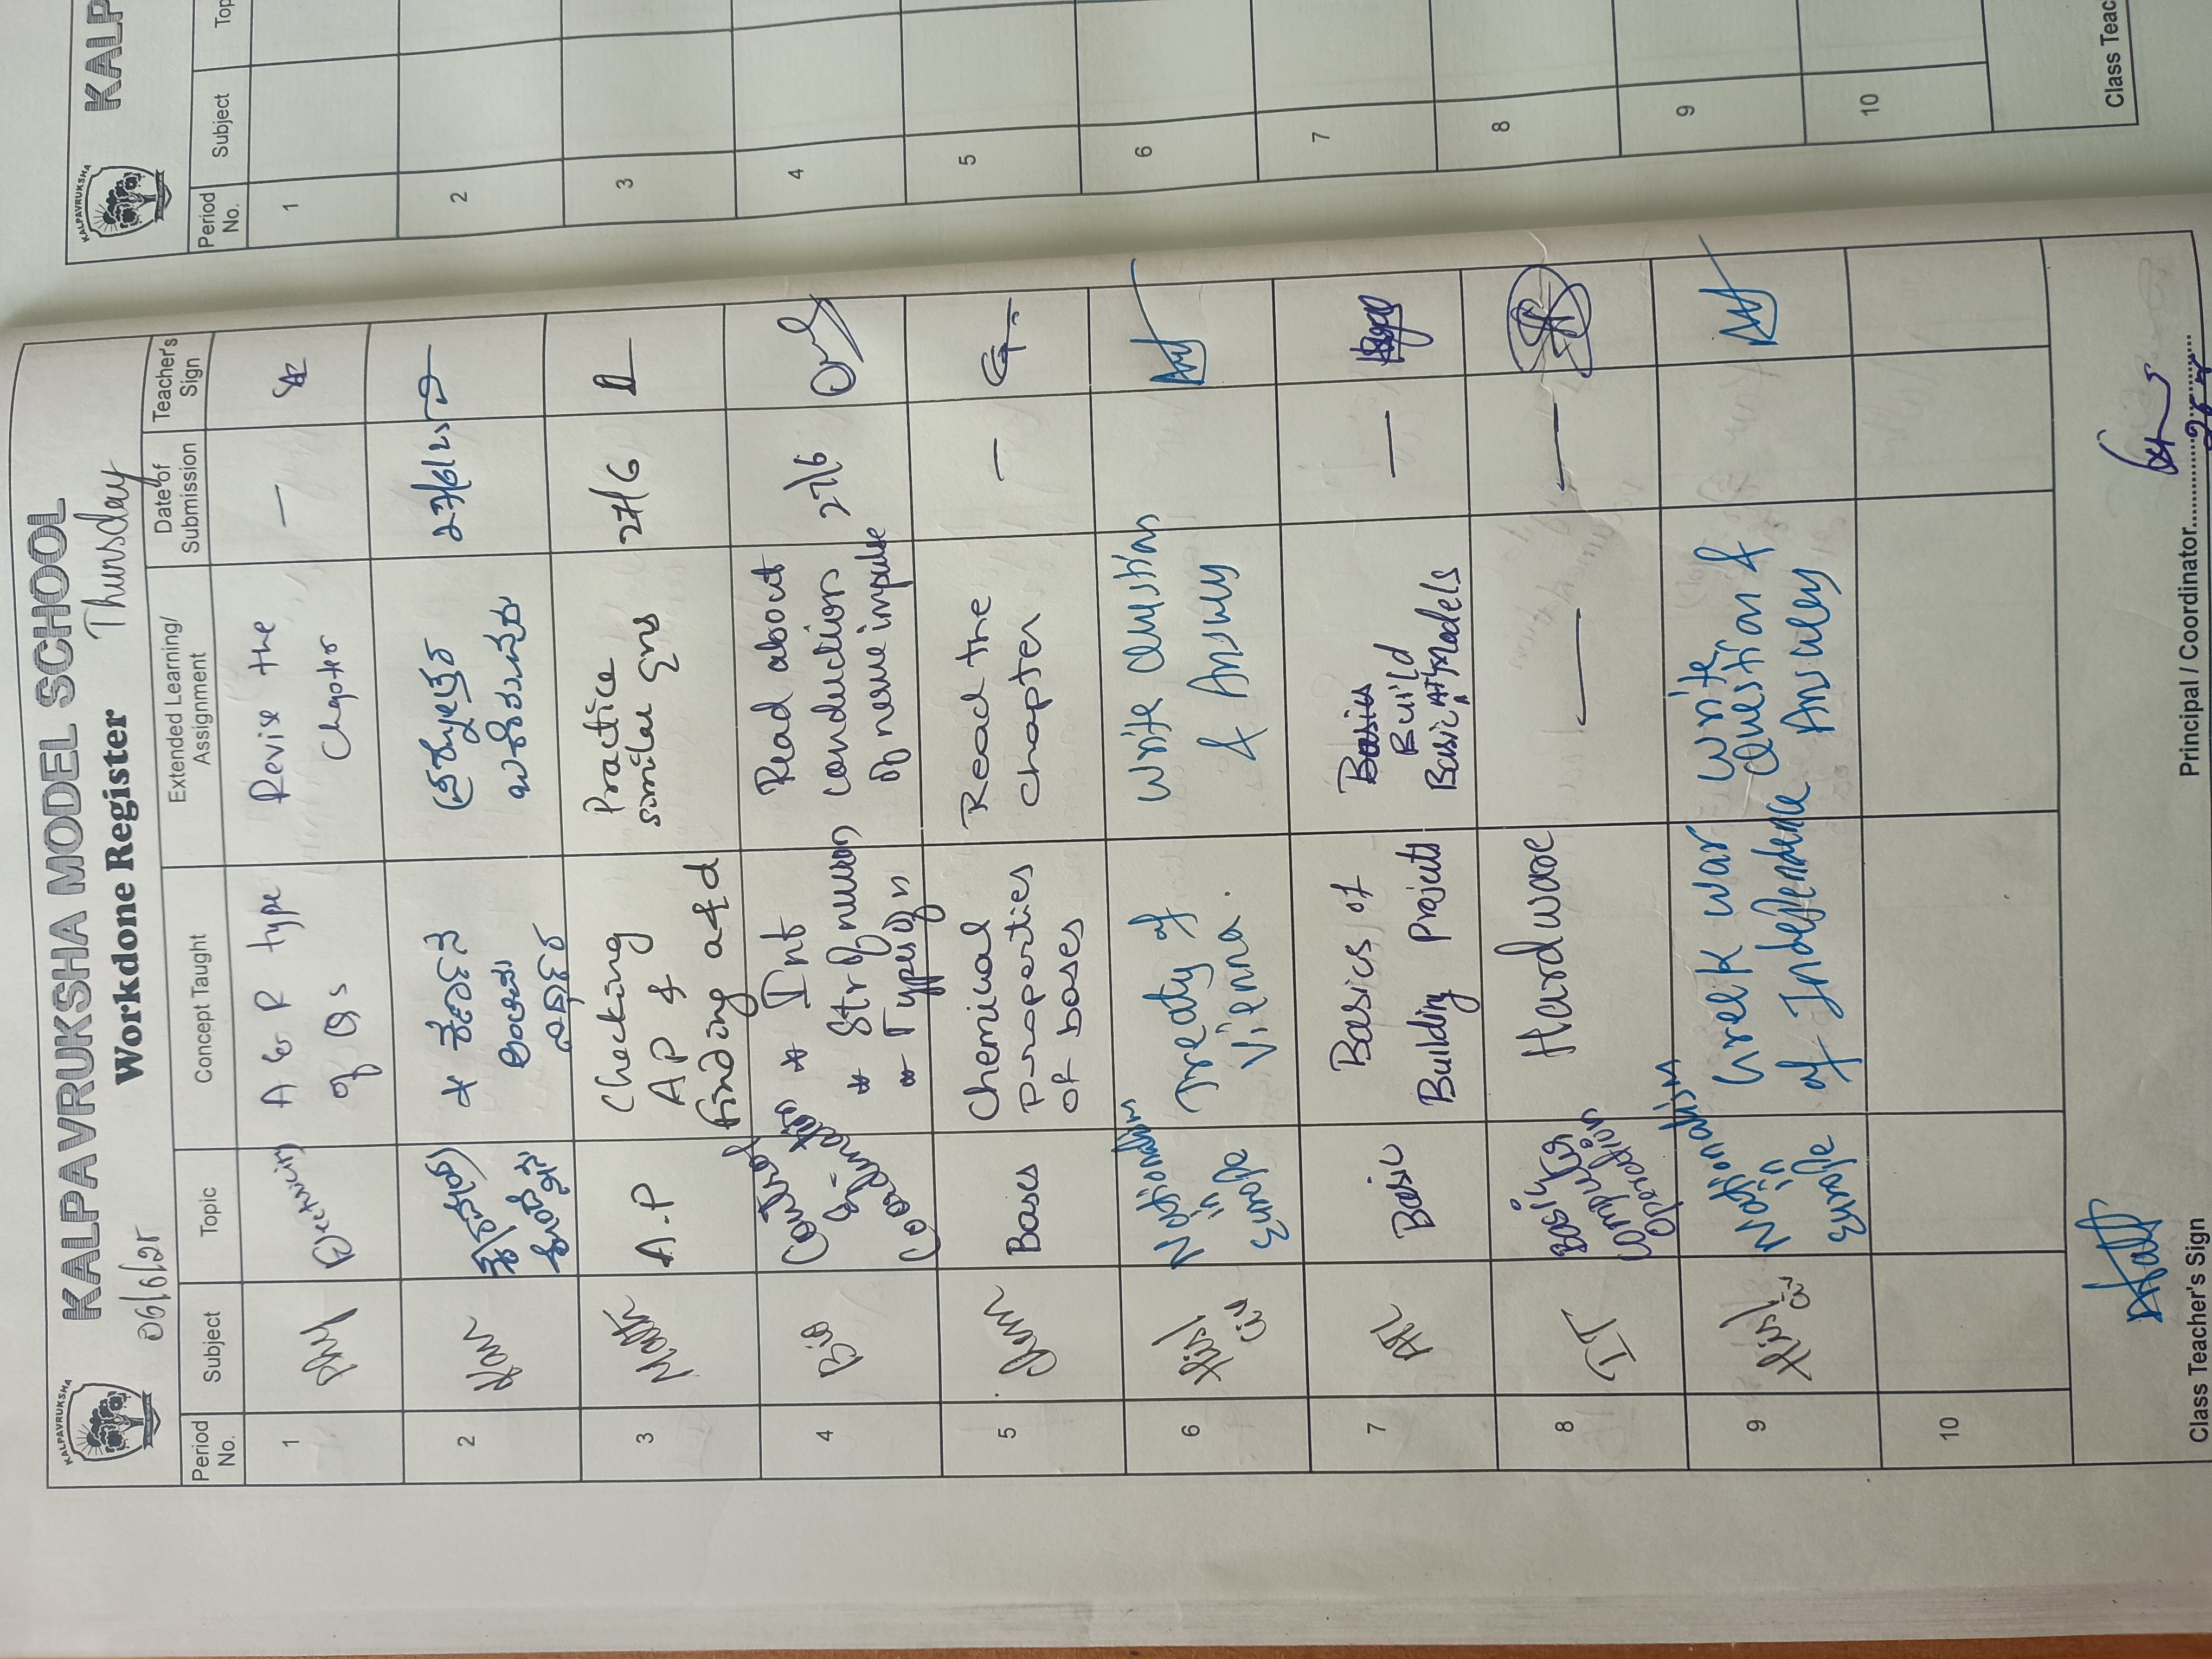 KALPAVRUKSHA
KALPAVRUKSHA MODEL SCHOOL
Workdone Register
Thursday
Period No. Subject Topic Concept Taught Extended Learning/ Assignment Date of Submission Teacher's Sign
1 Phy Electricity A & R type of Qs Revise the Chapter —
2 Kan 27/6/25
3 Math A.P Checking AP & finding a & d Practice similar 27/6
4 Bio Control and Coordination * Int * Str of neuron * Types of n Read about conduction of nerve impulse 27/6
5 Chem Bases Chemical Properties of bases Read the chapter —
6 Hist Civ Nationalism in Europe Treaty of Vienna. Write Question & Answer
7 Basic Basics of Building Projects Build Basic Models —
8 IT Basic computer operation Hardware — —
9 Hist Civ Nationalism in Europe Greek war of Independence Write Question & Answer
10
Class Teacher's Sign
Principal / Coordinator
KALPAVRUKSHA
KALP
Period No. Subject Top
1
2
3
4
5
6
7
8
9
10
Class Teac